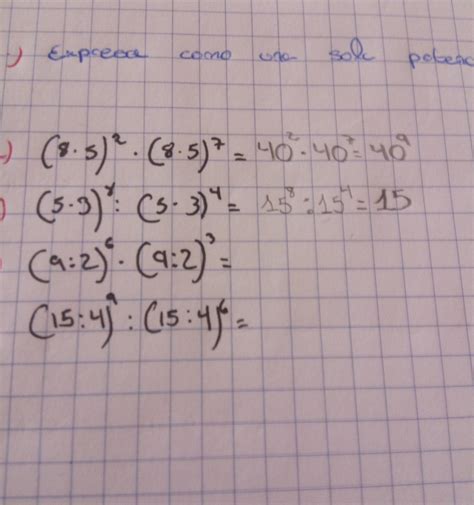 Expresa como una sola potenc
(8·5)² · (8·5)⁷ = 40² · 40⁷ = 40⁹
(5·3)⁸ : (5·3)⁴ = 15⁸ : 15⁴ = 15
(9:2)⁶ · (9:2)³ =
(15:4)⁹ : (15:4)⁶ =